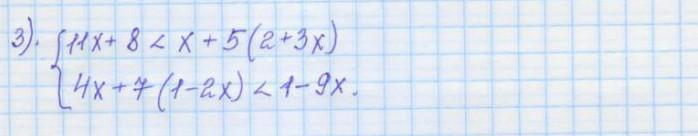 3). { 11x + 8 < x + 5(2+3x)
4x + 7(1-2x) < 1-9x.